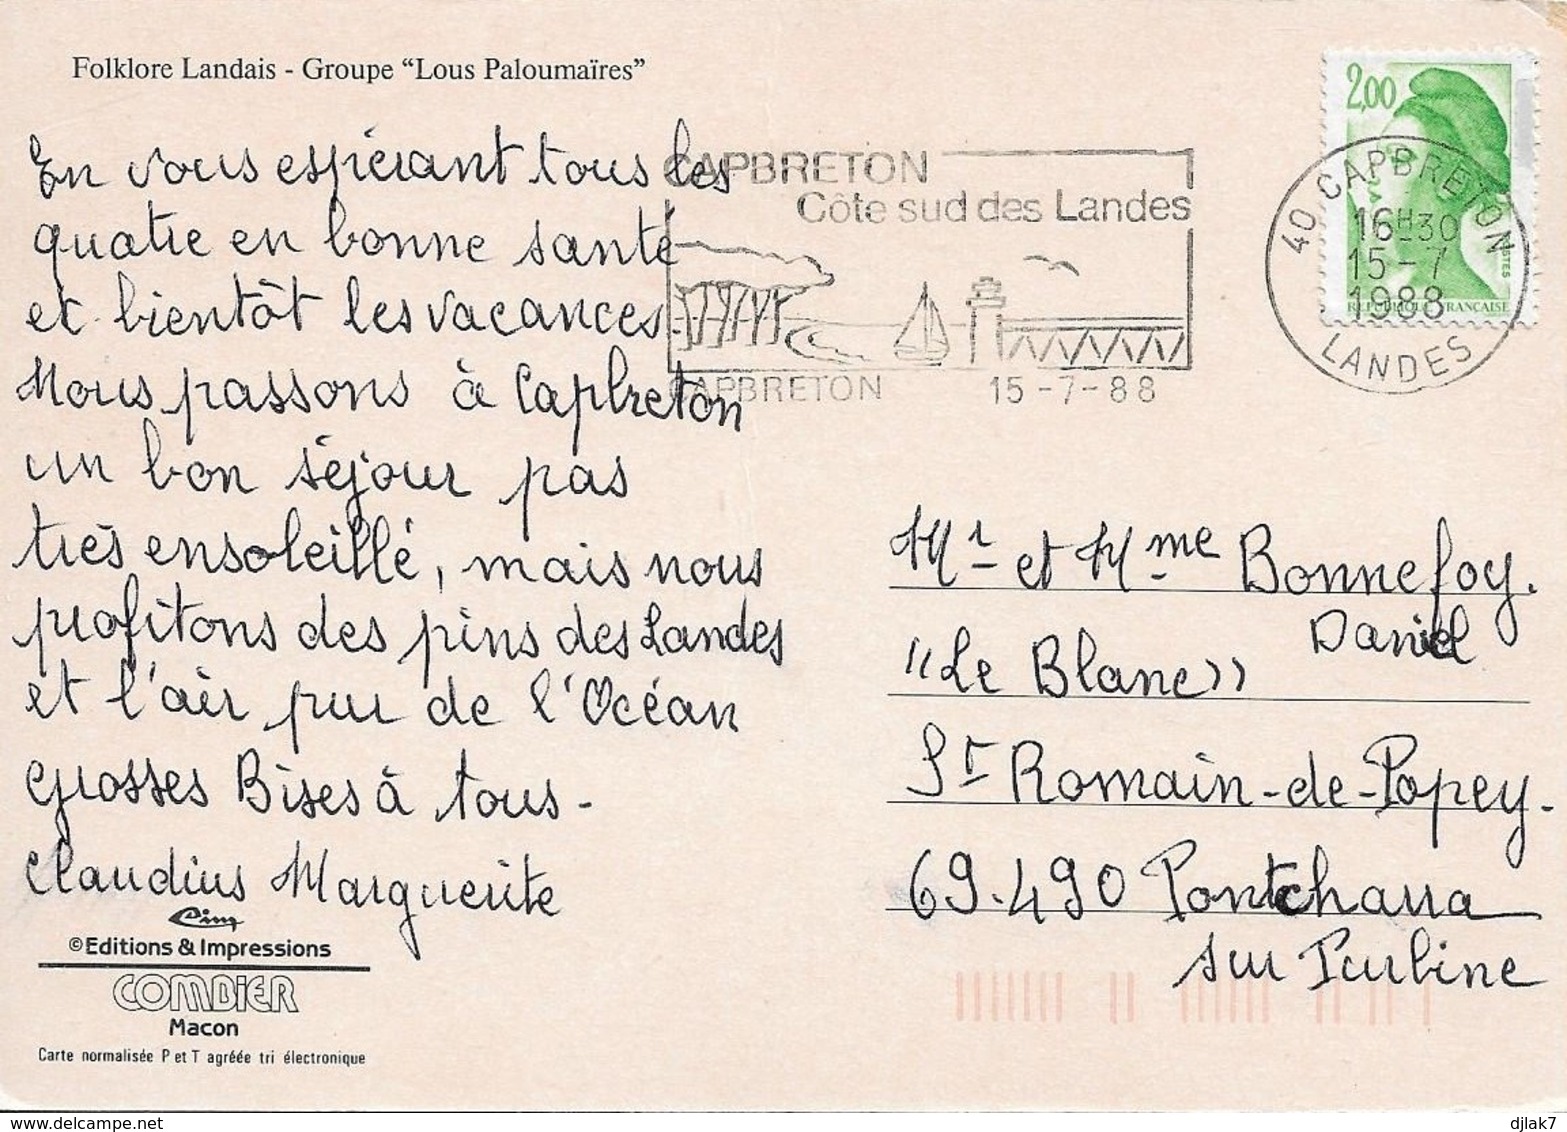 Folklore Landais - Groupe “Lous Paloumaïres”
En vous espérant tous les
quatre en bonne santé
et bientôt les vacances.
Nous passons à Capbreton
un bon séjour pas
très ensoleillé, mais nous
profitons des pins des Landes
et l'air pur de l'Océan
grosses Bises à tous -
Claudius Marguerite
Cim
©Editions & Impressions
COMBIER
Macon
Carte normalisée P et T agréée tri électronique
CAPBRETON
Côte sud des Landes
CAPBRETON 15-7-88
2,00
REPUBLIQUE FRANÇAISE
40 CAPBRETON
16H30
15-7
1988
LANDES
Mr et Mme Bonnefoy.
Daniel
"Le Blanc"
St Romain-de-Popey.
69.490 Pontcharra
sur Turdine
djlak7